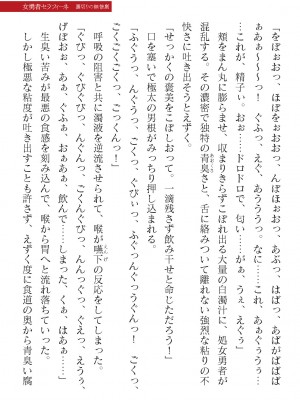 女勇者セラフィーネ
「おぼぉっ、ほぼをぉおぉっ、んぽほぉおっ、あぶっ、はばっ、あばがばばば
がはぁぁっ！　ぐふっ、えぐ、あうううっ。なに……これ、あぁぐぅうぅ…
これが、精子ぃ。おぉ……ドロドロで、匂い……がぁ、うぇ、えぐぅ」
頬をまん丸に膨らませ、収まりきらずこぼれ出る大量の白濁汁に、処女勇者が
混乱する。その濃密で独特の青臭さと、舌に絡みついて離れない強烈な粘りの不
快さに吐き出そうとえずく。
「せっかくの褒美をこぼしおって。一滴残さず飲み干せと命じただろう！」
口を塞いで極太の男根がみっちり押し込まれる。
「ふぐうっ、んぐうっ、ごくっ、ぐぴいっ、ふぐんぐうっぐんっ！　ごくっ、
ごくごくごくっ、ごっくんっ！」
呼吸の阻害と共に濁液を逆流させられて、喉が嚥下の反応をしてしまった。
「ぐぴっ、ぐぴぐぴっ、んぐっ、ごくんぐぴっんっ、ぐぴくっ、えううっ、
げぽおぉ、あぁ、ぐふぁ、おぉあぁぁ　飲んで……しまった、くぁ、はぁ……」
生臭い苦みが最悪の食感を刻み込んで、喉から胃へと流れ落ちていった。
しかし極悪な粘度が吐き出すことも許さず、えずく度に食道の奥から青臭い腐